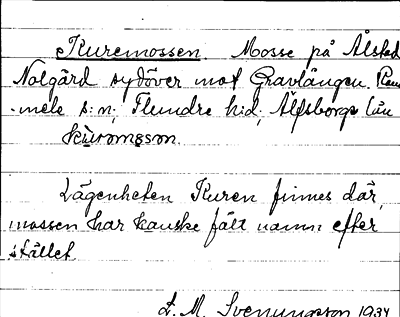 Kuremossen. Mosse på Ålstad
Nolgård sydöver mot Gravlången. Rom
-mele s:n, Flundre hd, Älfsborgs län
kùromǫsąn.
Lägenheten Kuren finnes där,
mossen har kanske fått namn efter
stället
L. M. Svenungsson 1934